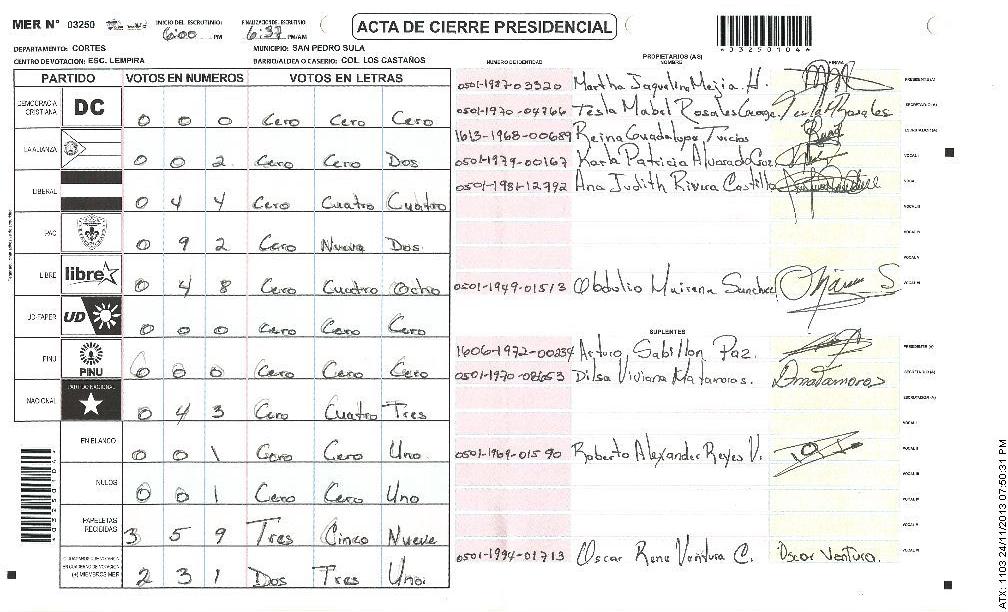 MER N° 03250 INICIO DEL ESCRUTINIO: 6:00 PM FINALIZACION DEL ESCRUTINIO 6:37 PM/AM
ACTA DE CIERRE PRESIDENCIAL
DEPARTAMENTO: CORTES MUNICIPIO: SAN PEDRO SULA
CENTRO DE VOTACION: ESC. LEMPIRA BARRIO/ALDEA O CASERIO: COL. LOS CASTAÑOS
PARTIDO VOTOS EN NUMEROS VOTOS EN LETRAS
DEMOCRACIA CRISTIANA DC 0 0 0 Cero Cero Cero
LA ALIANZA 0 0 2 Cero Cero Dos
LIBERAL 0 4 4 Cero Cuatro Cuatro
PAC 0 9 2 Cero Nueve Dos
LIBRE libre 0 4 8 Cero Cuatro Ocho
UD-FAPER UD 0 0 0 Cero Cero Cero
PINU PINU 0 0 0 Cero Cero Cero
NACIONAL PARTIDO NACIONAL 0 4 3 Cero Cuatro Tres
EN BLANCO 0 0 1 Cero Cero Uno
NULOS 0 0 1 Cero Cero Uno
PAPELETAS RECIBIDAS 3 5 9 Tres Cinco Nueve
(+) MIEMBROS MER 2 3 1 Dos Tres Uno.
*03250104*
PROPIETARIOS (AS)
NUMERO DE IDENTIDAD NOMBRE FIRMA
0501-1987-03320 Martha Jaqueline Mejia H. PRESIDENTE (A)
0501-1970-04766 Tesla Mabel Rosales George SECRETARIO (A)
1613-1968-00689 Reina Guadalupe Turcios ESCRUTADOR (A)
0501-1979-00167 Karla Patricia Alvarado Cruz VOCAL I
0501-1981-12792 Ana Judith Rivera Castillo
VOCAL III
VOCAL IV
VOCAL V
0501-1949-01513 Obdulio Mairena Sanchez VOCAL VI
SUPLENTES
1606-1972-00234 Arturo Sabillon Paz. PRESIDENTE (A)
0501-1970-08653 Dilsa Viviana Matamoros. SECRETARIO (A)
ESCRUTADOR (A)
0501-1969-01590 Roberto Alexander Reyes V. VOCAL II
VOCAL III
VOCAL IV
VOCAL V
0501-1994-01713 Oscar Rene Ventura C. Oscar Ventura. VOCAL VI
ATX: 1103 24/11/2013 07:50:31 PM